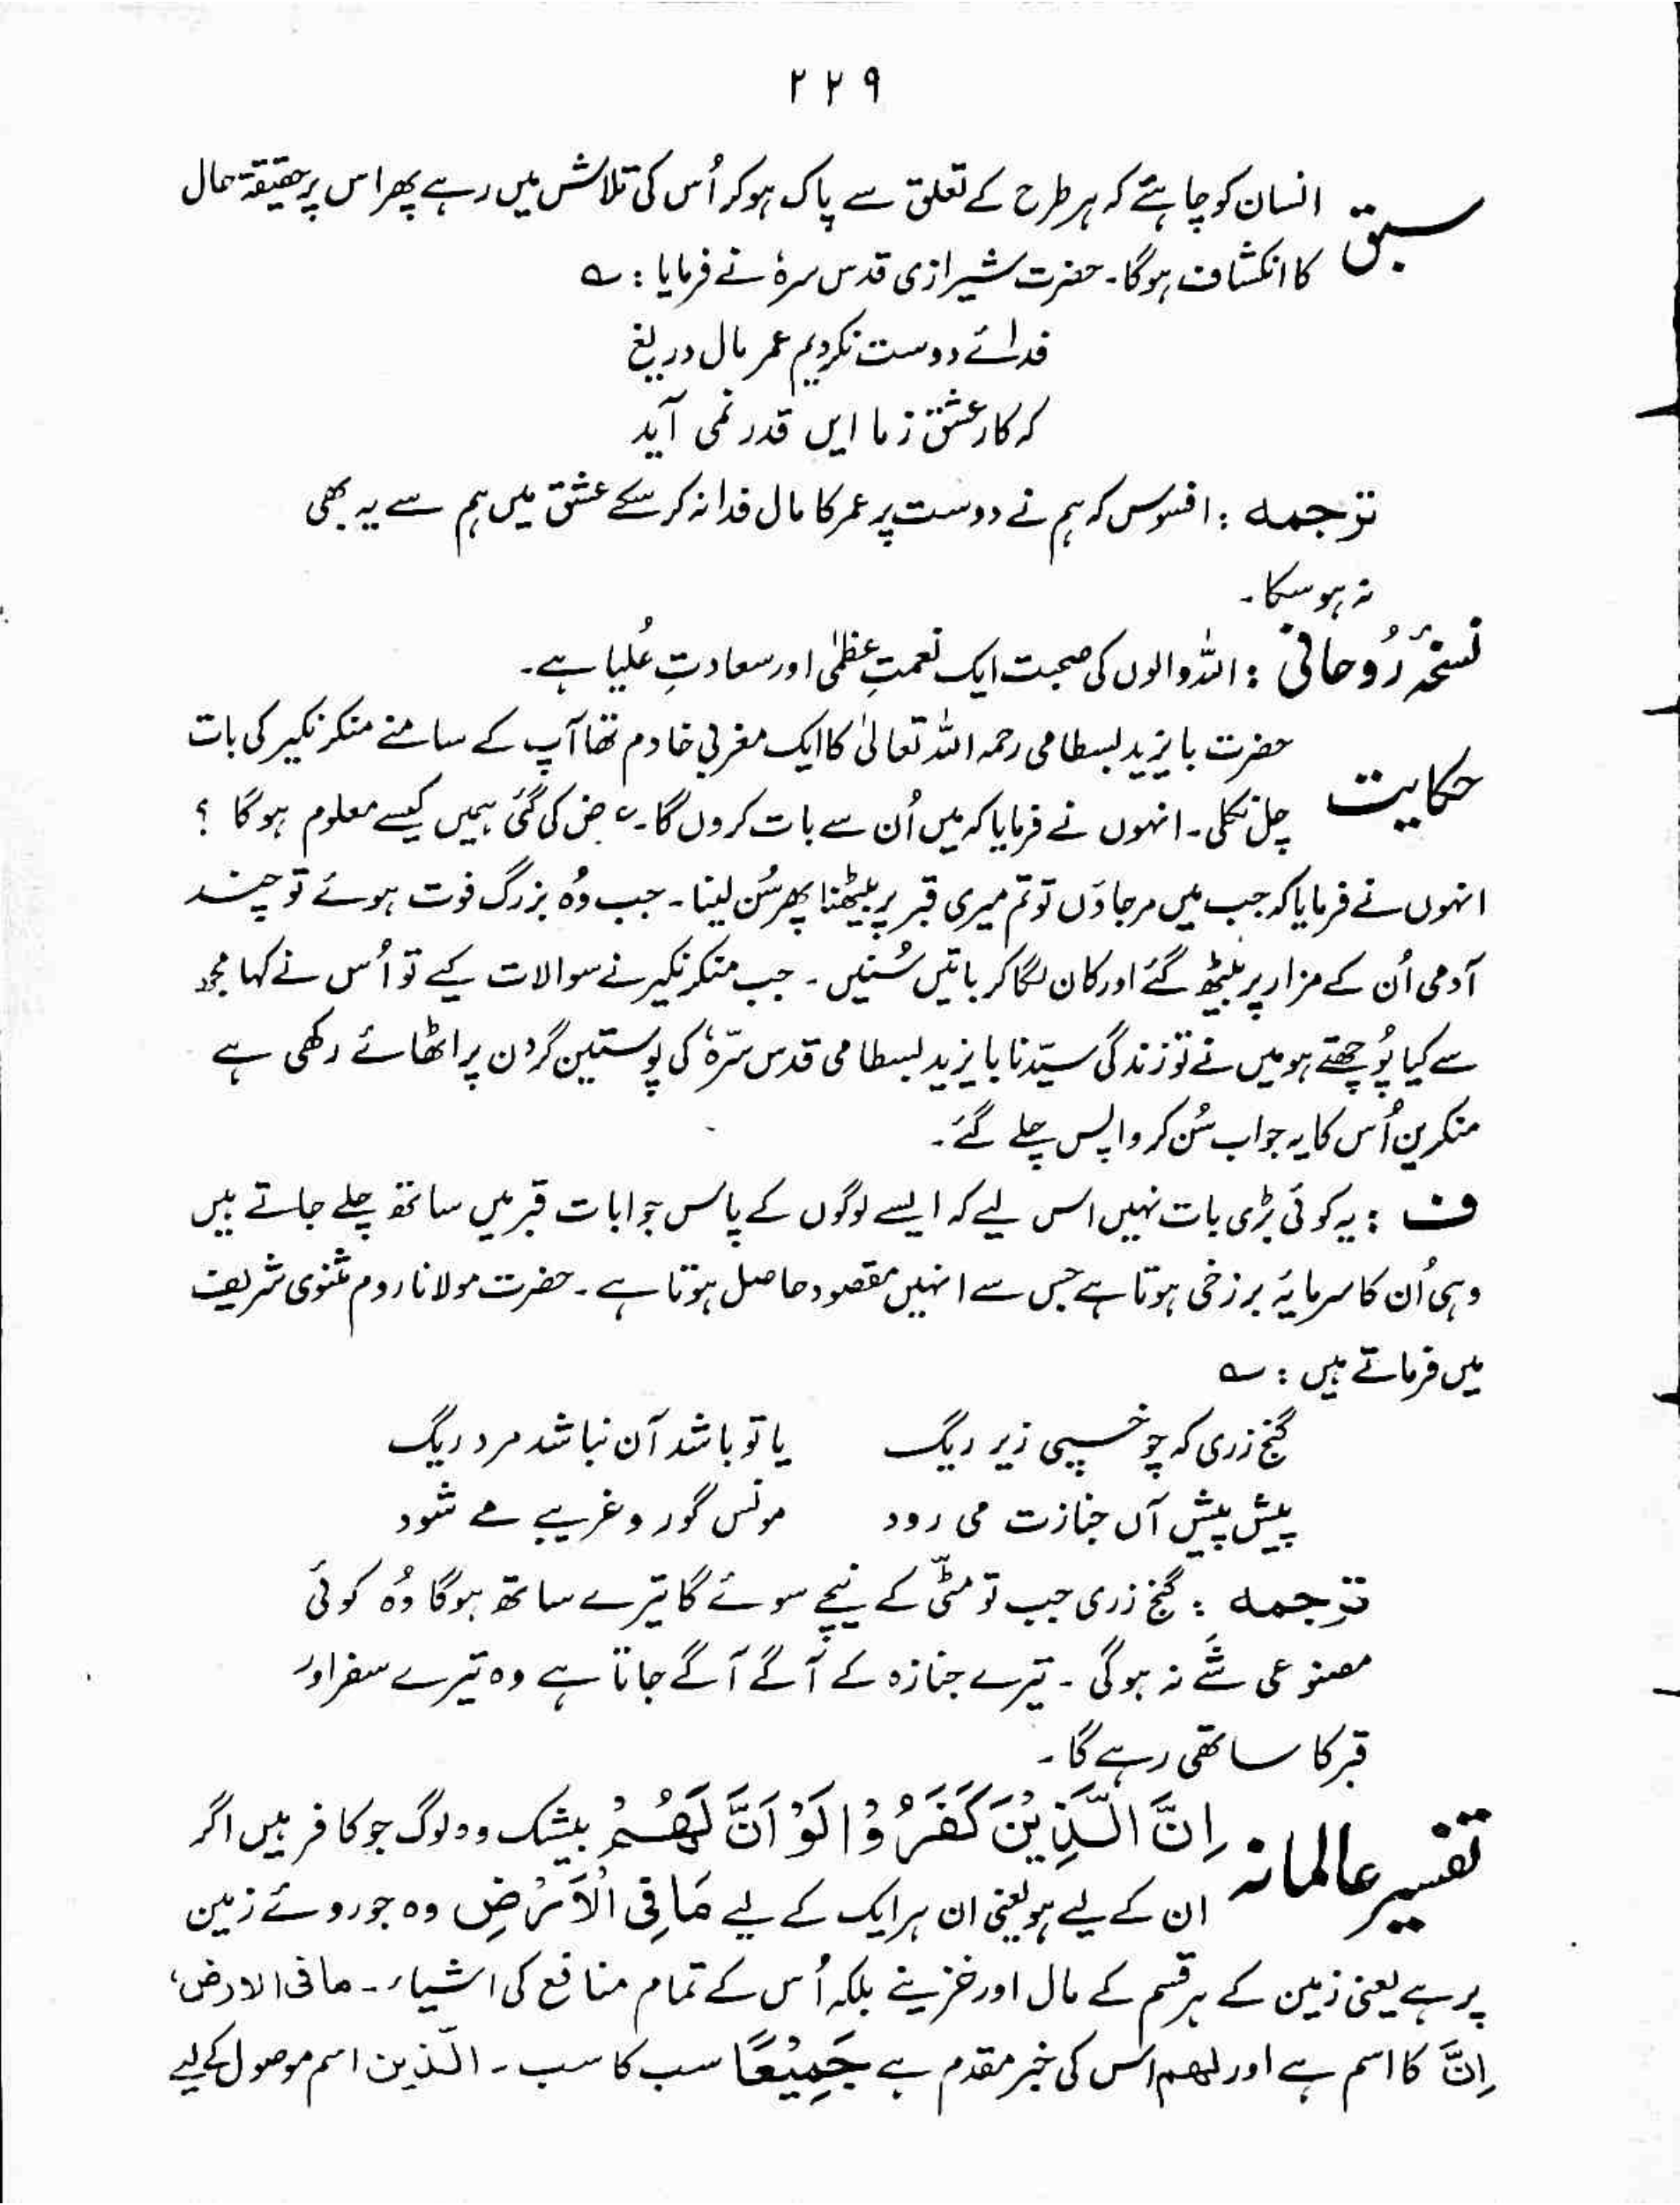 ۲۲۹
سبق انسان کو چاہئے کہ ہر طرح کے تعلق سے پاک ہو کر اُس کی تلاش میں رہے پھر اس پر حقیقۃ حال
کا انکشاف ہوگا۔ حضرت شیرازی قدس سرہٗ نے فرمایا : ؎
فدائے دوست نکردیم عمر مال دریغ
کہ کار عشق زما ایں قدر نمی آید
ترجمہ : افسوس کہ ہم نے دوست پر عمر کا مال فدا نہ کر سکے عشق میں ہم سے یہ بھی
نہ ہو سکا۔
نسخۂ رُوحانی : اللہ والوں کی صحبت ایک نعمتِ عظمٰی اور سعادتِ عُلیا ہے۔
حکایت حضرت بایزید بسطامی رحمہ اللہ تعالیٰ کا ایک مغربی خادم تھا آپ کے سامنے منکر نکیر کی بات
چل نکلی۔ انہوں نے فرمایا کہ میں اُن سے بات کروں گا۔ عرض کی گئی ہمیں کیسے معلوم ہوگا ؟
انہوں نے فرمایا کہ جب میں مرجاؤں تو تم میری قبر پر بیٹھنا پھر سُن لینا۔ جب وُہ بزرگ فوت ہوئے تو چند
آدمی اُن کے مزار پر بیٹھ گئے اور کان لگا کر باتیں سُنیں۔ جب منکر نکیر نے سوالات کیے تو اُس نے کہا مجھ
سے کیا پُوچھتے ہو میں نے تو زندگی سیّدنا بایزید بسطامی قدس سرّہٗ کی پوستین گردن پر اٹھائے رکھی ہے
منکرین اُس کا یہ جواب سُن کر واپس چلے گئے۔
ف : یہ کوئی بڑی بات نہیں اس لیے کہ ایسے لوگوں کے پاس جوابات قبر میں ساتھ چلے جاتے ہیں
وہی اُن کا سرمایۂ برزخی ہوتا ہے جس سے انہیں مقصود حاصل ہوتا ہے۔ حضرت مولانا روم مثنوی شریف
میں فرماتے ہیں : ؎
گنج زری کہ چو خسپی زیر ریگ یا تو باشد آن نباشد مرد ریگ
پیش پیش آں جنازت می رود مونس گور و غریبے مے شود
ترجمہ : گنج زری جب تو مٹّی کے نیچے سوئے گا تیرے ساتھ ہوگا وُہ کوئی
مصنوعی شَے نہ ہوگی۔ تیرے جنازہ کے آگے آگے جاتا ہے وہ تیرے سفر اور
قبر کا ساتھی رہے گا۔
تفسیر عالمانہ اِنَّ الَّذِیْنَ کَفَرُوْا لَوْ اَنَّ لَھُمْ بیشک وہ لوگ جو کافر ہیں اگر
ان کے لیے ہو یعنی ان ہر ایک کے لیے مَا فِی الْاَرْضِ وہ جو روئے زمین
پر ہے یعنی زمین کے ہر قسم کے مال اور خزینے بلکہ اُس کے تمام منافع کی اشیاء۔ مافی الارض،
اِنَّ کا اسم ہے اور لھم اس کی خبر مقدم ہے جَمِیْعًا سب کا سب۔ الّذین اسم موصول کے لیے